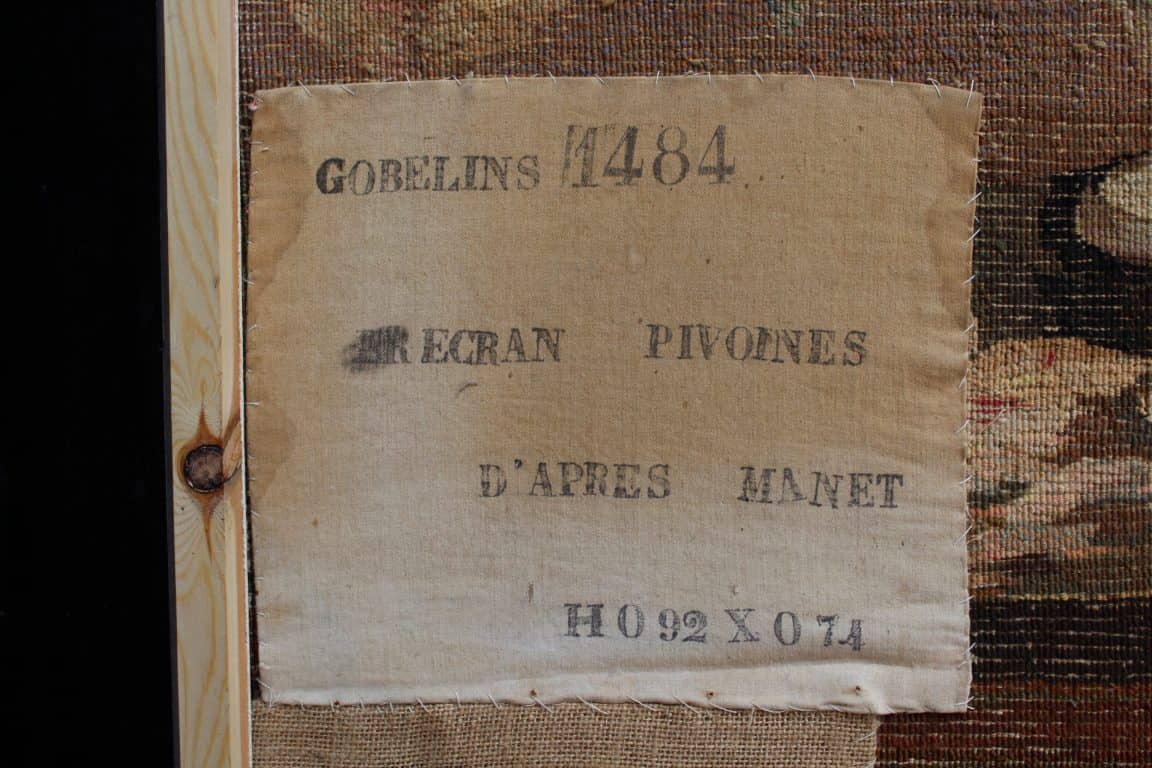 GOBELINS 1484
ECRAN PIVOINES
D'APRES MANET
H 0 92 X 0 74